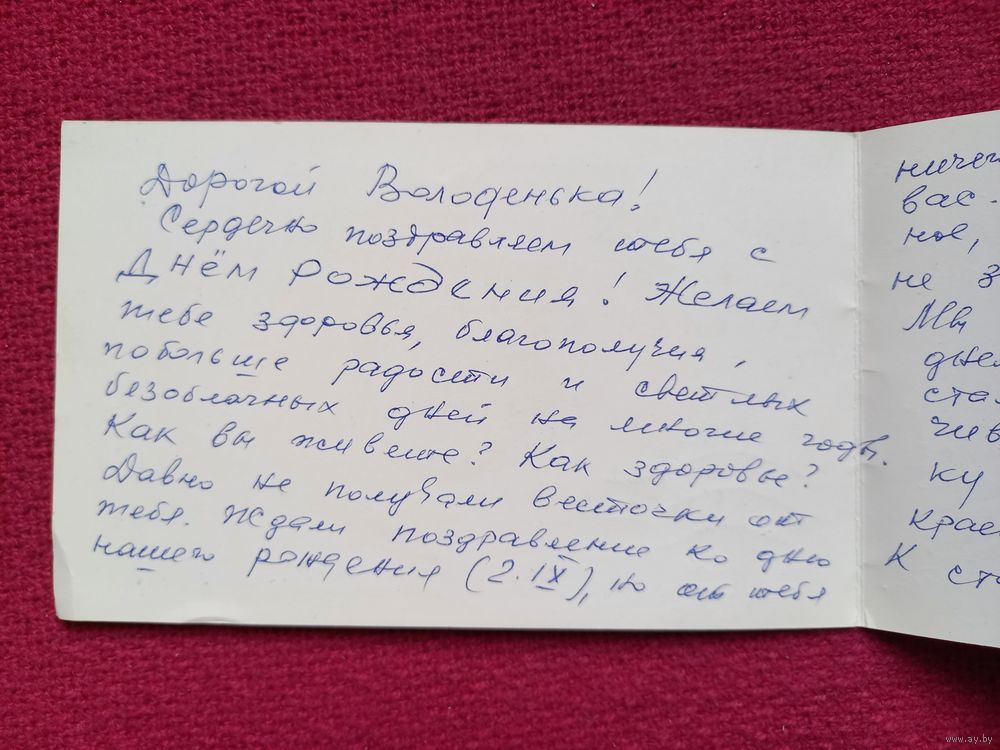 Дорогой Володенька!
Сердечно поздравляем тебя с
Днём Рождения! Желаем
тебе здоровья, благополучия,
побольше радости и светлых
безоблачных дней на многие годы.
Как вы живете? Как здоровье?
Давно не получали весточки от
тебя. Ждали поздравление ко дню
нашего рождения (2.IX), но от тебя
ничег
вас.
ное,
не з
Мы
дне
ста
чив
ку
Крас
К ст
www.ay.by